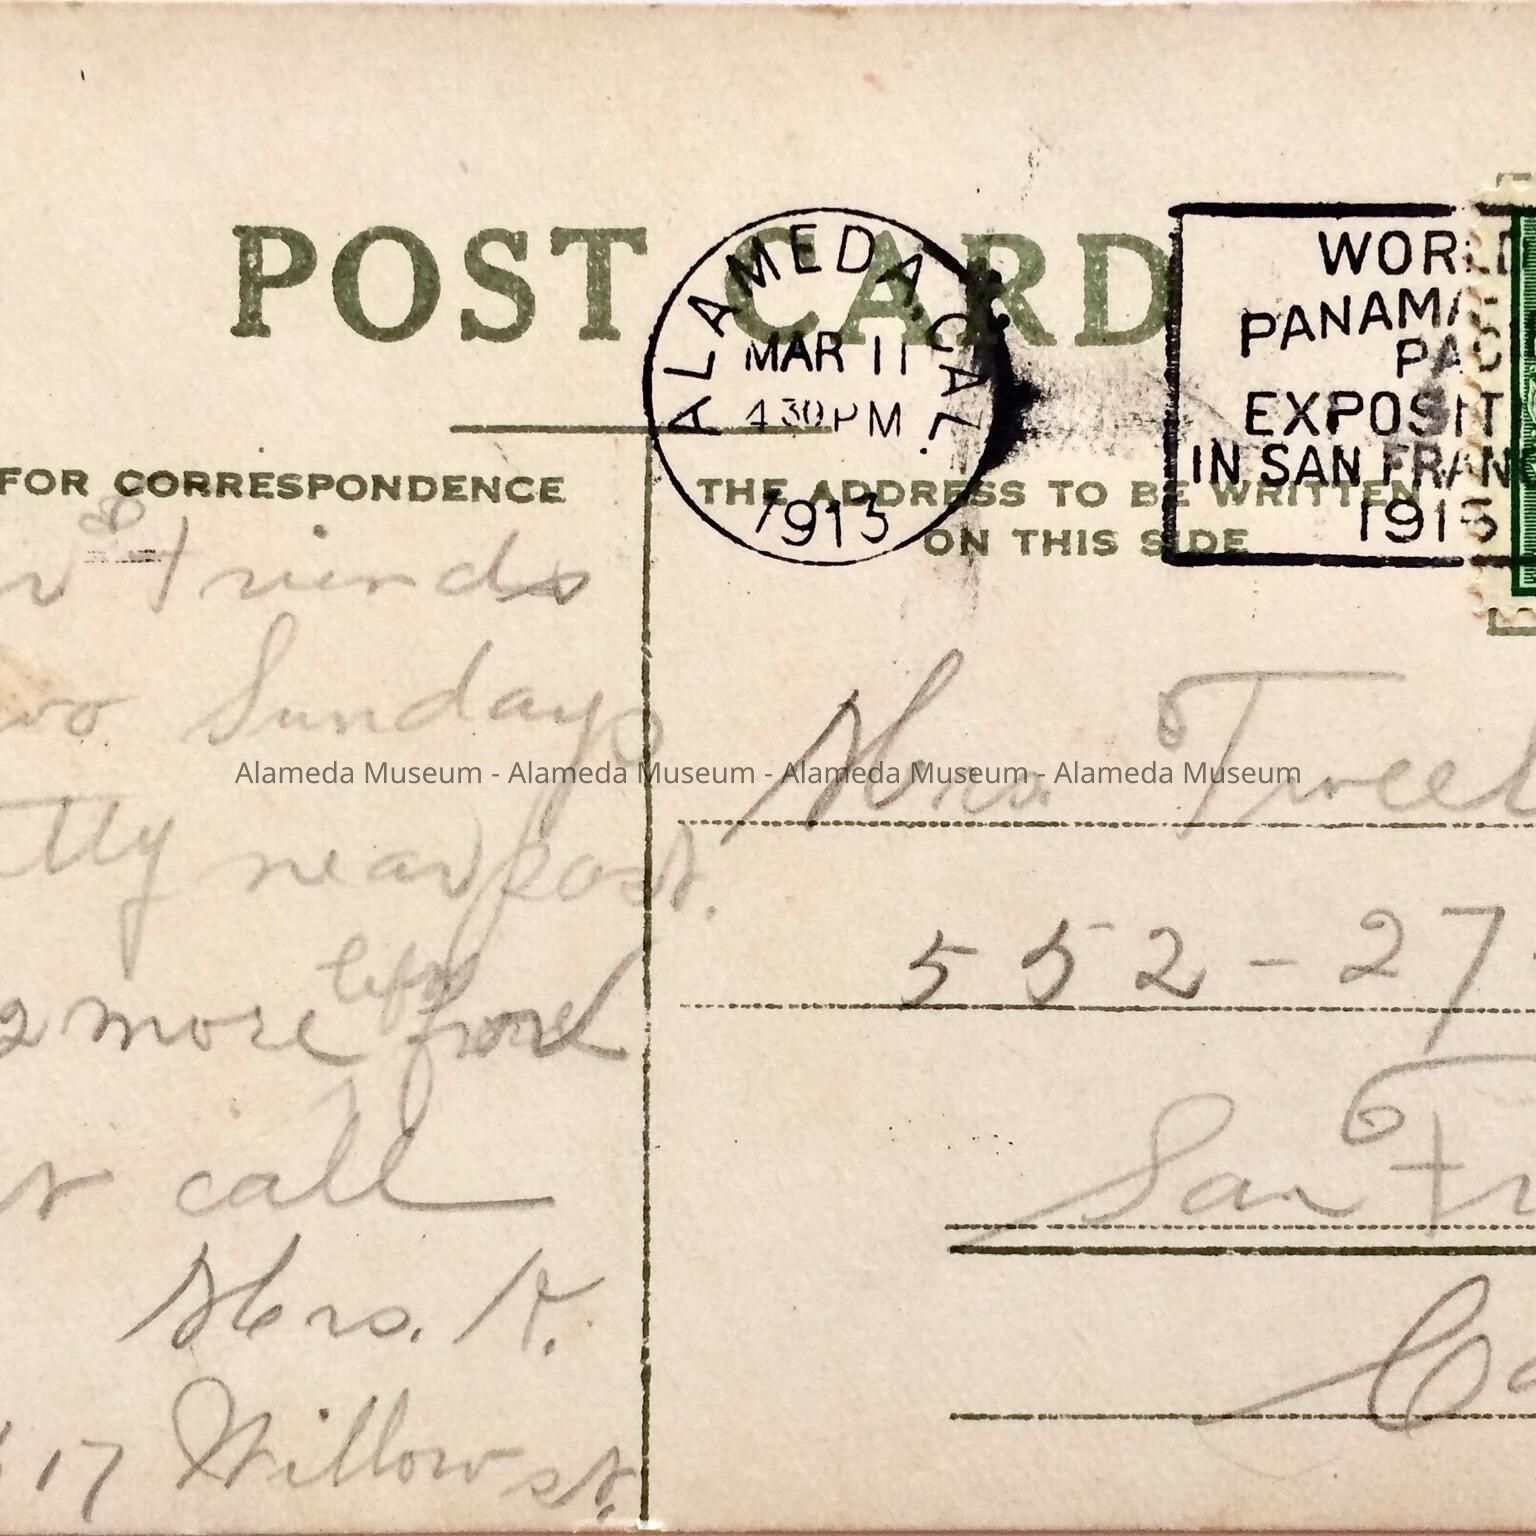 POST CARD
ALAMEDA, CAL.
MAR 11
4 30 PM
1913
WORLD
PANAMA
PAC
EXPOSIT
IN SAN FRAN
1915
FOR CORRESPONDENCE
THE ADDRESS TO BE WRITTEN
ON THIS SIDE
Friends
Sundays
near past.
2 more left
call
Mrs. K.
17 Willow st.
Alameda Museum - Alameda Museum - Alameda Museum - Alameda Museum
Mrs. Tweel
552-27
San Fr
Ca